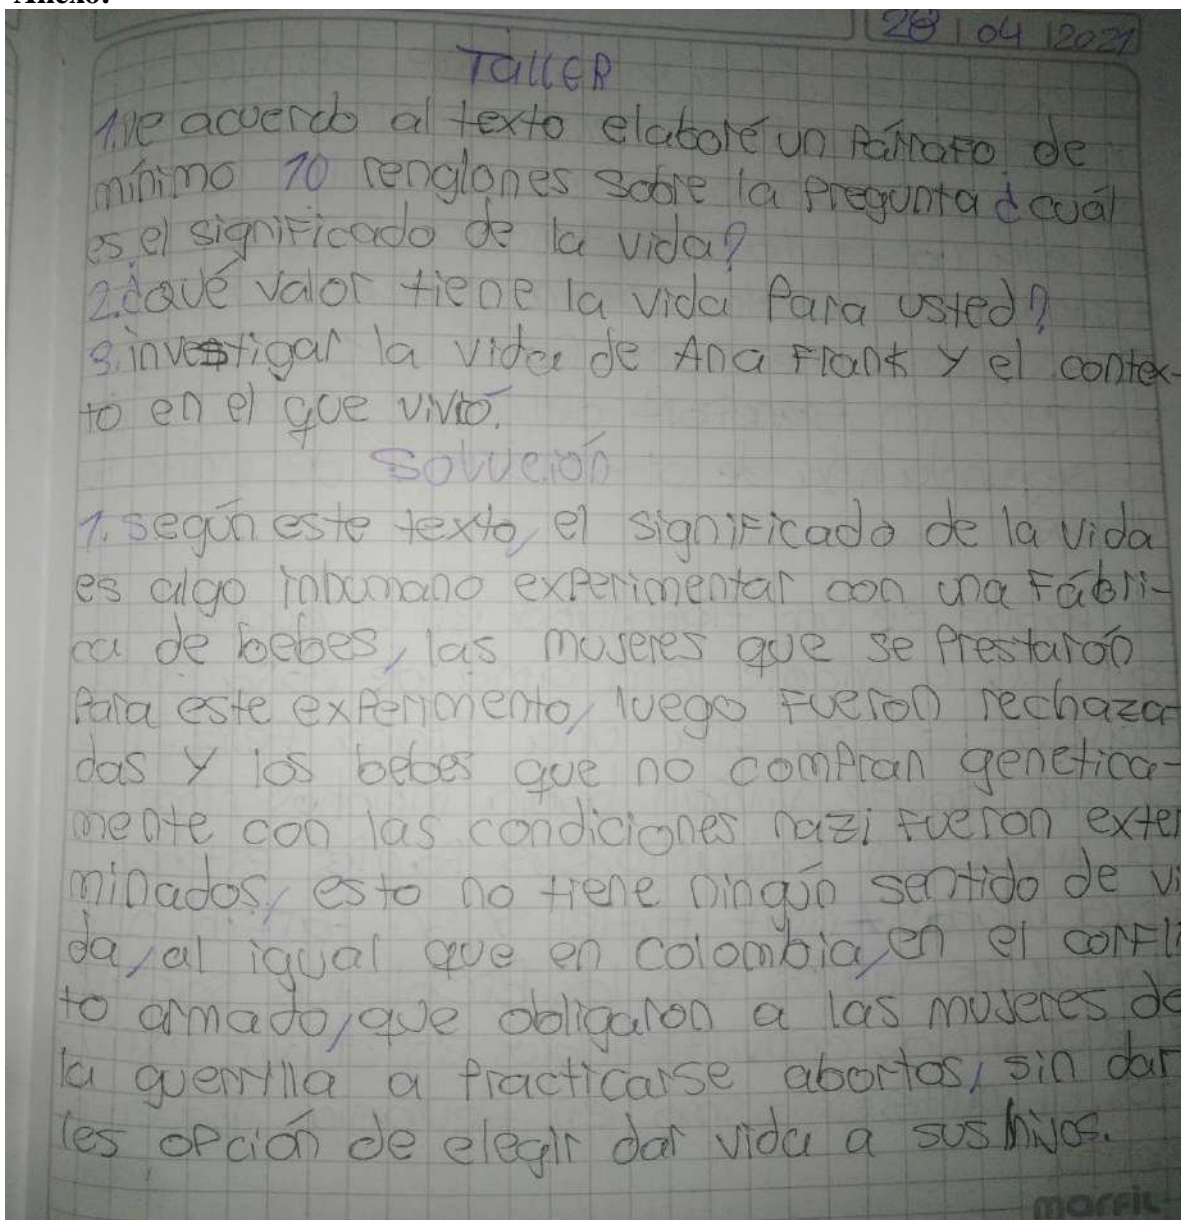 Anexo:
28 | 04 | 2021
TallER
1. De acuerdo al texto elaboré un Párrafo de
mínimo 10 renglones sobre la Pregunta ¿cuál
es el significado de la vida?
2. ¿Qué valor tiene la vida Para usted?
3. investigar la vida de Ana Frank y el contex-
to en el que vivió.
Solución
1. según este texto, el significado de la vida
es algo inhumano experimentar con una Fábri-
ca de bebes, las mujeres que se Prestarón
Para este experimento, luego Fueron rechaza-
das y los bebes que no complan genetica-
mente con las condiciones nazi fueron exter
minados, esto no tiene ningún sentido de vi
da, al igual que en colombia, en el confli
to armado, que obligaron a las mujeres de
la guerrilla a Practicarse abortos, sin dar
les opción de elegir dar vida a sus hijos.
marfil